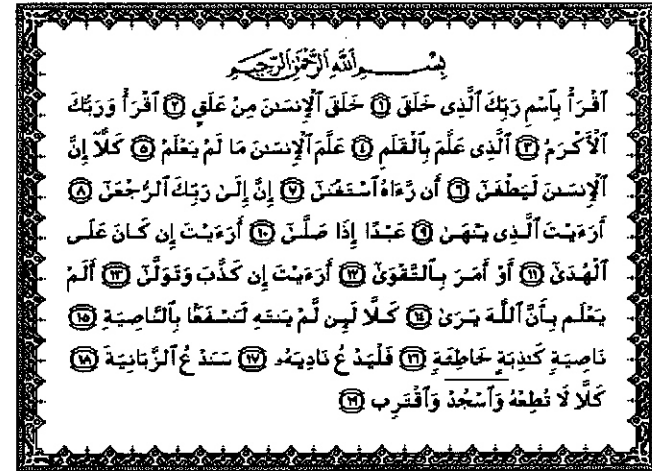 بِسْمِ ٱللَّهِ ٱلرَّحْمَٰنِ ٱلرَّحِيمِ
ٱقْرَأْ بِٱسْمِ رَبِّكَ ٱلَّذِى خَلَقَ ١ خَلَقَ ٱلْإِنسَٰنَ مِنْ عَلَقٍ ٢ ٱقْرَأْ وَرَبُّكَ
ٱلْأَكْرَمُ ٣ ٱلَّذِى عَلَّمَ بِٱلْقَلَمِ ٤ عَلَّمَ ٱلْإِنسَٰنَ مَا لَمْ يَعْلَمْ ٥ كَلَّآ إِنَّ
ٱلْإِنسَٰنَ لَيَطْغَىٰٓ ٦ أَن رَّءَاهُ ٱسْتَغْنَىٰٓ ٧ إِنَّ إِلَىٰ رَبِّكَ ٱلرُّجْعَىٰٓ ٨
أَرَءَيْتَ ٱلَّذِى يَنْهَىٰ ٩ عَبْدًا إِذَا صَلَّىٰٓ ١٠ أَرَءَيْتَ إِن كَانَ عَلَى
ٱلْهُدَىٰٓ ١١ أَوْ أَمَرَ بِٱلتَّقْوَىٰٓ ١٢ أَرَءَيْتَ إِن كَذَّبَ وَتَوَلَّىٰٓ ١٣ أَلَمْ
يَعْلَم بِأَنَّ ٱللَّهَ يَرَىٰ ١٤ كَلَّا لَئِن لَّمْ يَنتَهِ لَنَسْفَعًۢا بِٱلنَّاصِيَةِ ١٥
نَاصِيَةٍ كَٰذِبَةٍ خَاطِئَةٍ ١٦ فَلْيَدْعُ نَادِيَهُۥ ١٧ سَنَدْعُ ٱلزَّبَانِيَةَ ١٨
كَلَّا لَا تُطِعْهُ وَٱسْجُدْ وَٱقْتَرِب ١٩